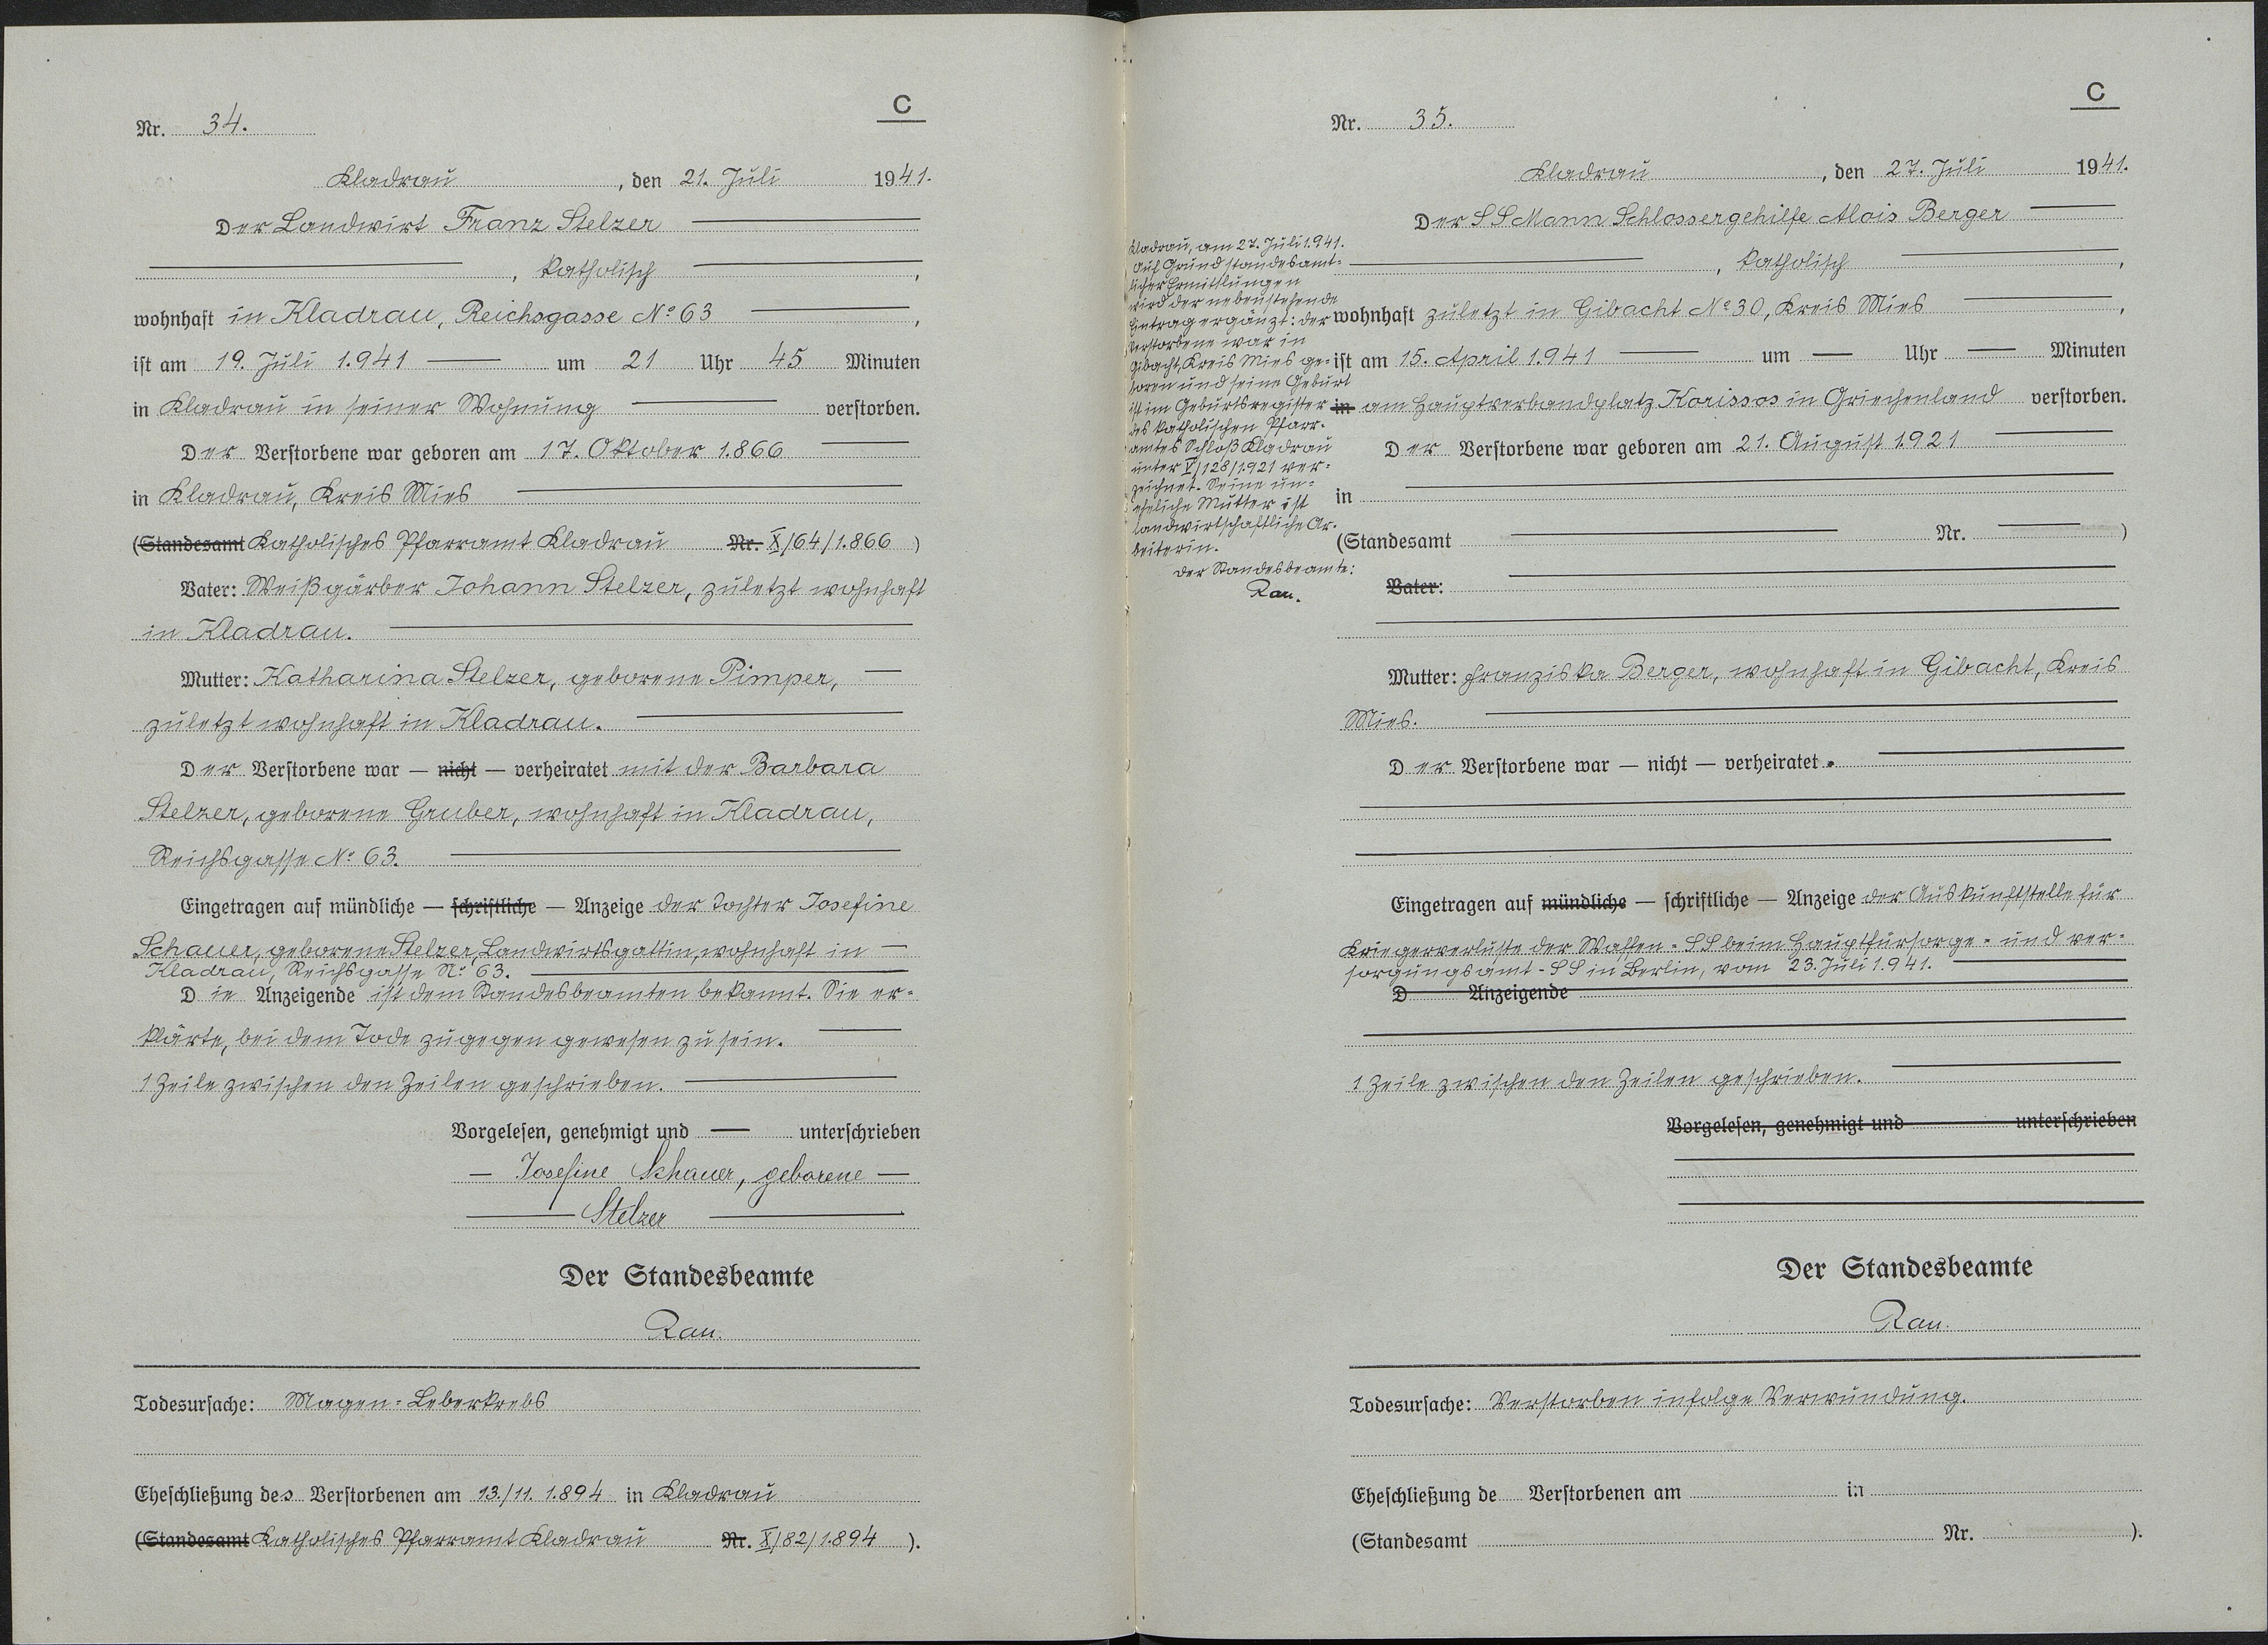 C
Nr. 34.
Kladrau, den 21. Juli 1941.
Der Landwirt Franz Stelzer
, katholisch,
wohnhaft in Kladrau, Reichsgasse No 63,
ist am 19. Juli 1.941 um 21 Uhr 45 Minuten
in Kladrau in seiner Wohnung verstorben.
Der Verstorbene war geboren am 17. Oktober 1.866
in Kladrau, Kreis Mies
(Standesamt Katholisches Pfarramt Kladrau Nr. X/64/1.866)
Vater: Weißgärber Johann Stelzer, zuletzt wohnhaft
in Kladrau.
Mutter: Katharina Stelzer, geborene Pimper,
zuletzt wohnhaft in Kladrau.
Der Verstorbene war — nicht — verheiratet mit der Barbara
Stelzer, geborene Gruber, wohnhaft in Kladrau,
Reichsgasse No 63.
Eingetragen auf mündliche — schriftliche — Anzeige der Tochter Josefine
Schauer, geborene Stelzer, Landwirtsgattin, wohnhaft in —
Kladrau, Reichsgasse No 63.
Die Anzeigende ist dem Standesbeamten bekannt. Sie er=
klärte, bei dem Tode zugegen gewesen zu sein.
1 Zeile zwischen den Zeilen geschrieben.
Vorgelesen, genehmigt und — unterschrieben
— Josefine Schauer, geborene —
Stelzer
Der Standesbeamte
Rau.
Todesursache: Magen=Leberkrebs
Eheschließung des Verstorbenen am 13./11. 1.894 in Kladrau
(Standesamt Katholisches Pfarramt Kladrau Nr. X/82/1.894).
C
Nr. 35.
Kladrau, den 27. Juli 1941.
Der SS Mann Schlossergehilfe Alois Berger
, katholisch,
wohnhaft zuletzt in Gibacht No 30, Kreis Mies,
ist am 15. April 1.941 um — Uhr — Minuten
in am Hauptverbandplatz Korissos in Griechenland verstorben.
Der Verstorbene war geboren am 21. August 1.921
in
(Standesamt Nr. )
Vater:
Mutter: Franziska Berger, wohnhaft in Gibacht, Kreis
Mies.
Der Verstorbene war — nicht — verheiratet.
Eingetragen auf mündliche — schriftliche — Anzeige der Auskunftstelle für
Kriegerverluste der Waffen=SS beim Hauptfürsorge= und ver=
sorgungsamt-SS in Berlin, vom 23. Juli 1.941.
D Anzeigende
1 Zeile zwischen den Zeilen geschrieben.
Vorgelesen, genehmigt und unterschrieben
Der Standesbeamte
Rau.
Todesursache: Verstorben infolge Verwundung.
Eheschließung de Verstorbenen am in
(Standesamt Nr. ).
Kladrau, am 27. Juli 1.941.
Auf Grund standesamt=
licher Ermittlungen
wird der nebenstehende
Eintrag ergänzt: der
Verstorbene war in
Gibacht, Kreis Mies ge=
boren und seine Geburt
ist im Geburtsregister
des katholischen Pfarr=
amtes Schloß Kladrau
unter V/128/1.921 ver=
zeichnet. Seine un=
eheliche Mutter ist
landwirtschaftliche Ar=
beiterin.
Der Standesbeamte:
Rau.